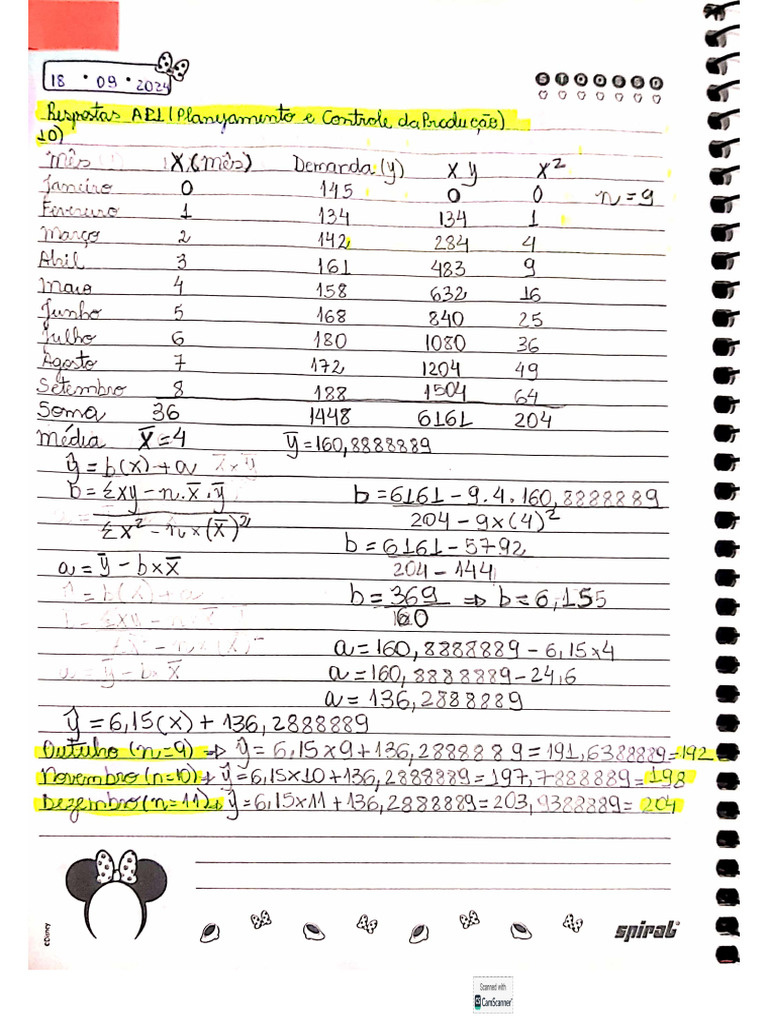 18 • 09 • 2024
S T Q Q S S D
Respostas AP1 (Planejamento e Controle da Produção)
10)
Mês X (Mês) Demanda (y) X y X²
Janeiro 0 145 0 0 n = 9
Fevereiro 1 134 134 1
Março 2 142 284 4
Abril 3 161 483 9
Maio 4 158 632 16
Junho 5 168 840 25
Julho 6 180 1080 36
Agosto 7 172 1204 49
Setembro 8 188 1504 64
Soma 36 1448 6161 204
Média X̄ = 4 ȳ = 160,8888889
ŷ = b(x) + a
b = Σxy − n . X̄ . ȳ b = 6161 − 9 . 4 . 160,8888889
Σx² − n x (X̄)² 204 − 9x(4)²
b = 6161 − 5792
a = ȳ − b x X̄ 204 − 144
b = 369 ⇒ b = 6,155
60
a = 160,8888889 − 6,15x4
a = 160,8888889 − 24,6
a = 136,2888889
ŷ = 6,15(x) + 136,2888889
Outubro (n = 9) ⇒ ŷ = 6,15x9 + 136,2888889 = 191,6388889 = 192
Novembro (n = 10) ŷ = 6,15x10 + 136,2888889 = 197,7888889 = 198
Dezembro (n = 11) ŷ = 6,15x11 + 136,2888889 = 203,9388889 = 204
©Disney
spiral
Scanned with
CS CamScanner